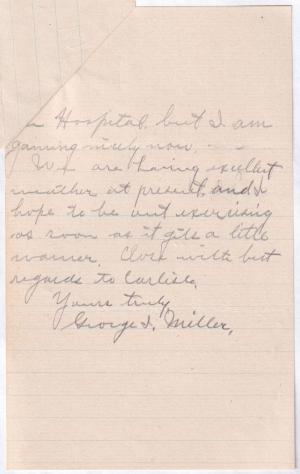 Hospital, but I am
gaining nicely now.
We are having excellent
weather at present, and I
hope to be out exercising
as soon as it gets a little
warmer. Close with best
regards to Carlisle,
Yours truly
George I. Miller.